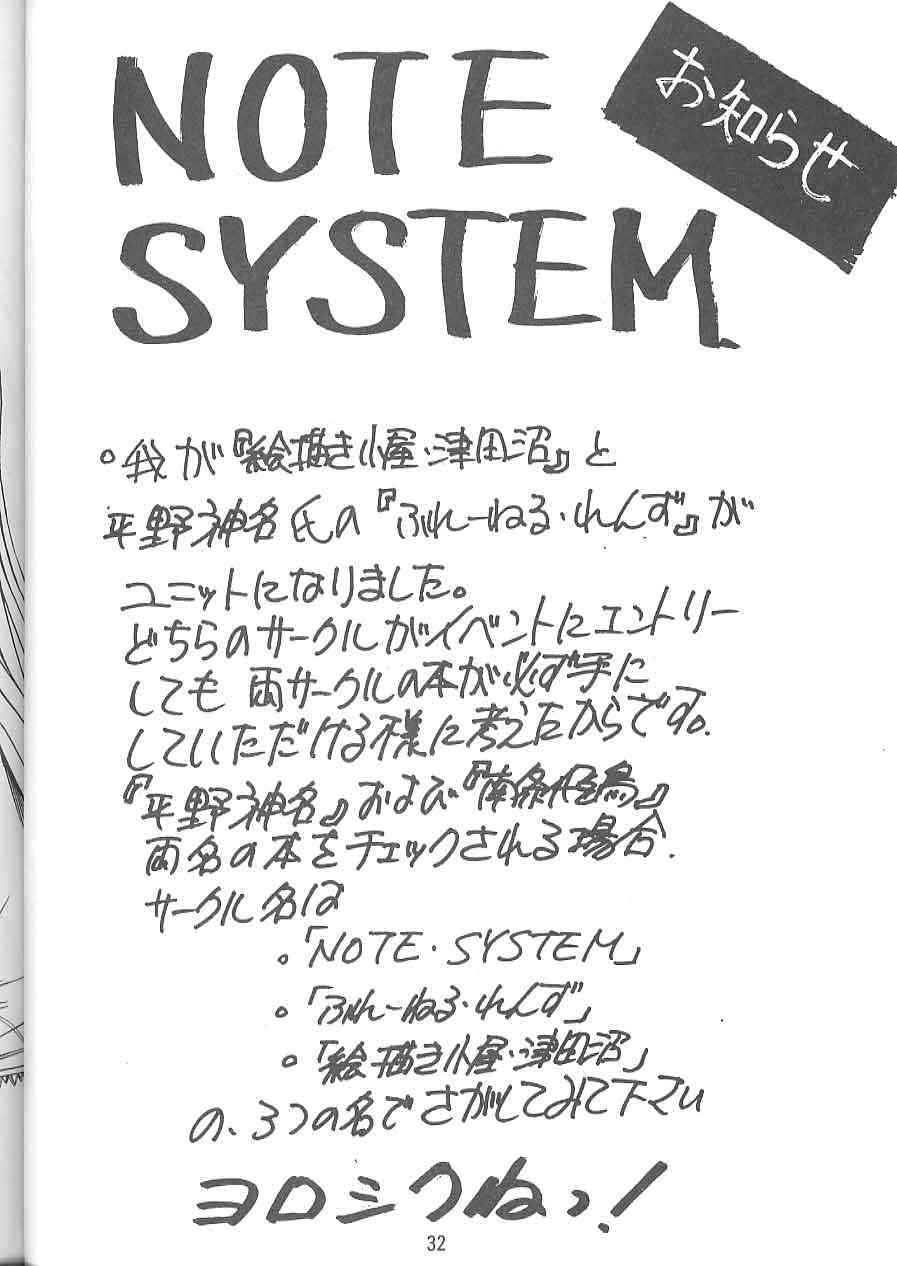 NOTE
お知らせ
SYSTEM
。我が『絵描き小屋・津田沼』と
平野神名氏の『ぶれーねる・れんず』が
ユニットになりました。
どちらのサークルがイベントにエントリー
しても 両サークルの本が必ず手に
していただける様に考えたからです。
『平野神名』および『南条飛鳥』
両名の本をチェックされる場合.
サークル名は
。「NOTE・SYSTEM」
。「ぶれーねる・れんず」
。「絵描き小屋・津田沼」
の、3つの名でさがしてみて下さい
ヨロシクねっ!
32